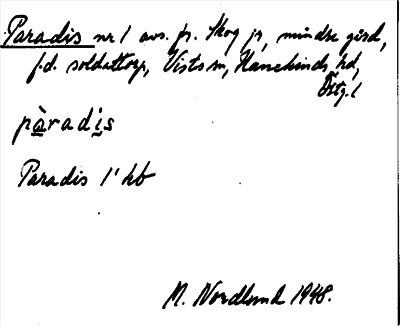 Paradis nr 1 avs. fr. Skog jr, mindre gård,
f.d. soldattorp, Vists sn, Hanekinds hd,
Östg. l
pàradis
Paradis 1' hb
M. Nordlund 1948.